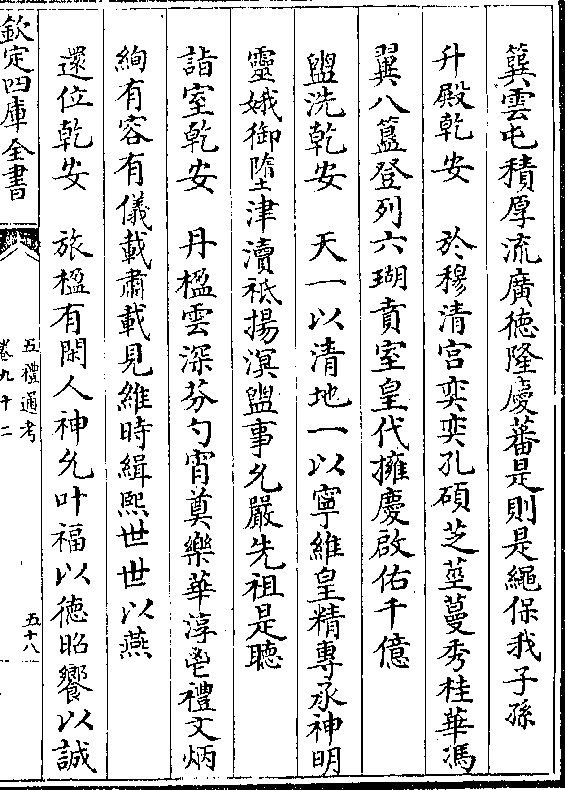 簨雲屯積厚流廣徳隆慶蕃是則是繩保我子孫
升殿乾安　於穆清宮奕奕孔碩芝莖蔓秀桂華馮
翼八簋登列六瑚賁室皇代擁慶啟佑千億
盥洗乾安　天一以清地一以寧維皇精專承神明
靈娥御墮津瀆祗揚溟盥事允嚴先祖是聽
詣室乾安　丹楹雲深芬勺宵奠樂華淳鬯禮文炳
絢有容有儀載肅載見維時緝熙世世以燕
還位乾安　旅楹有閑人神允叶福以徳昭饗以誠
欽定四庫全書
五禮通考
卷九十二
五十八